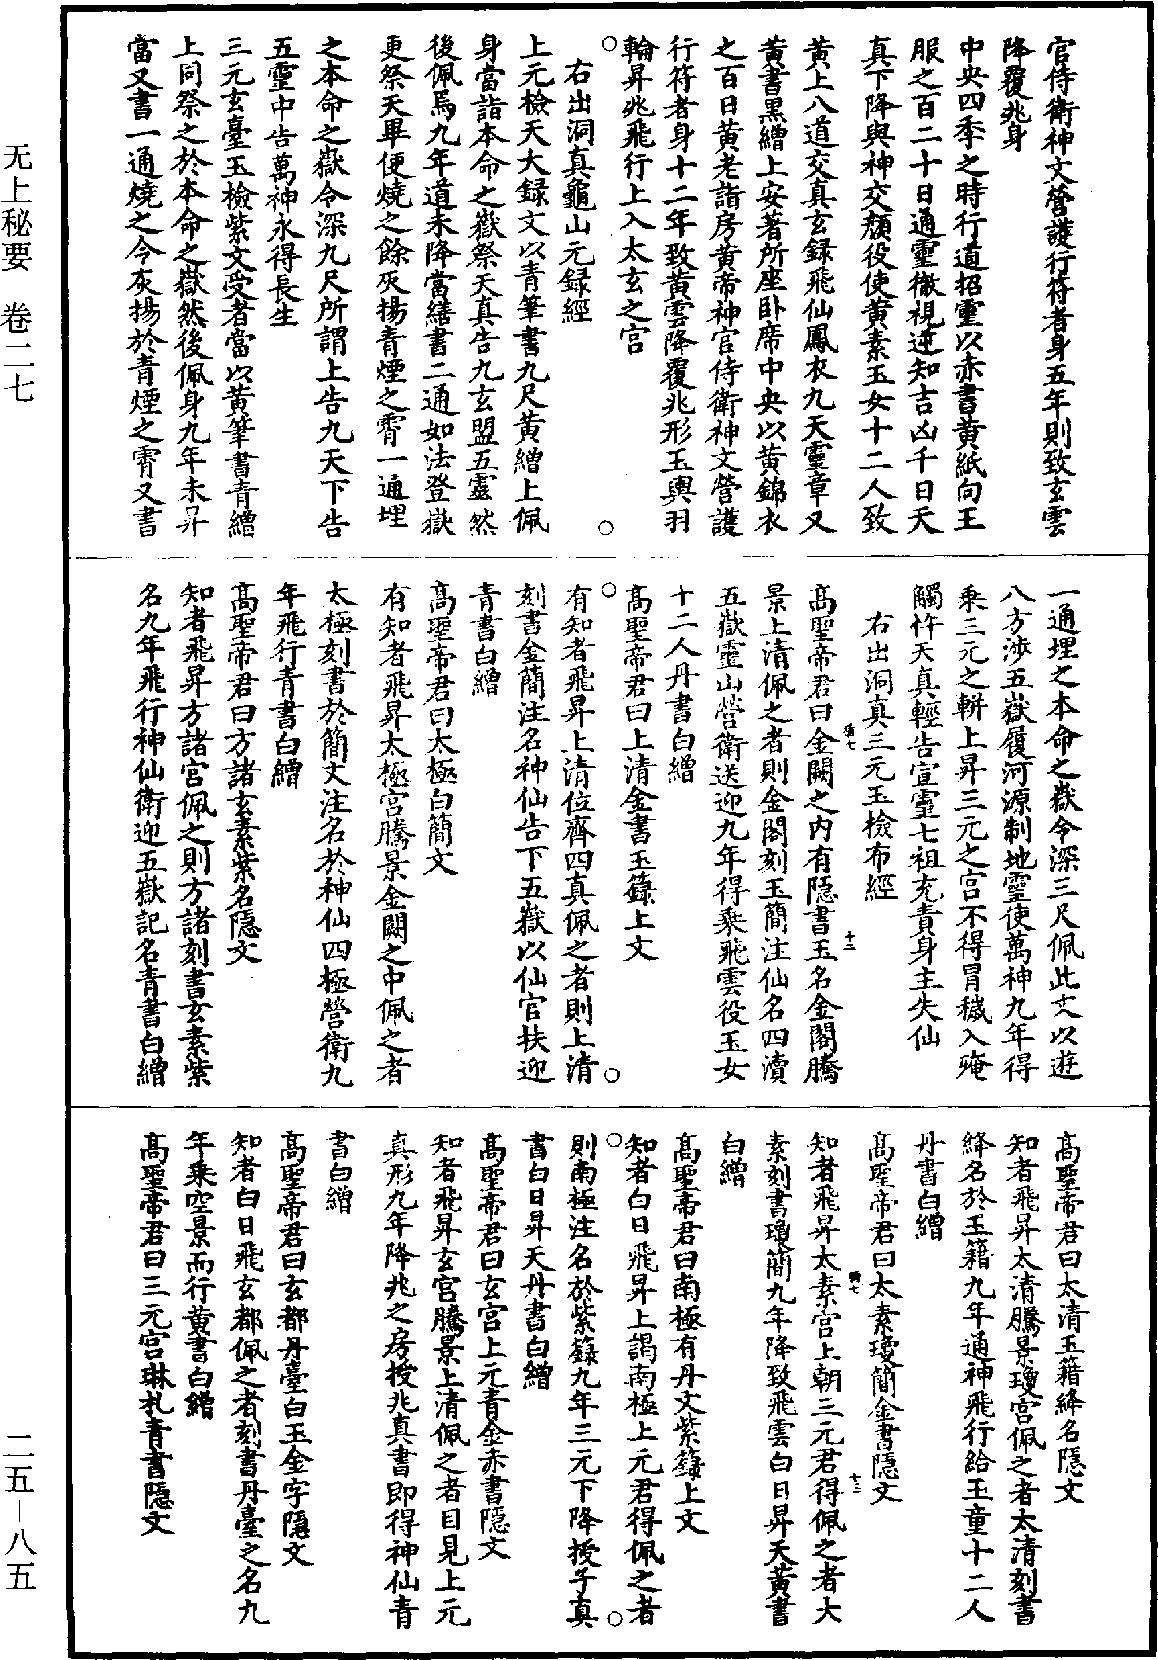 官侍衛神文營護行符者身五年則致玄雲
降覆兆身
中央四季之時行道招靈以赤書黃紙向王
服之百二十日通靈徹視逆知吉凶千日天
真下降與神交顏役使黃素玉女十二人致
黃上八道交真玄録飛仙鳳衣九天靈章又
黃書黑繒上安著所座卧席中央以黃錦衣
之百日黃老詣房黃帝神官侍衛神文營護
行符者身十二年致黃雲降覆兆形玉輿羽
輪昇兆飛行上入太玄之宫
右出洞真龜山元録經
上元檢天大録文以青筆書九尺黃繒上佩
身當詣本命之嶽祭天真告九玄盟五靈然
後佩焉九年道未降當繕書二通如法登嶽
更祭天畢便燒之餘灰揚青煙之霄一通埋
之本命之嶽令深九尺所謂上告九天下告
五靈中告萬神永得長生
三元玄臺玉檢紫文受者當以黃筆書青繒
上同祭之於本命之嶽然後佩身九年未昇
當又書一通燒之令灰揚於青煙之霄又書
一通埋之本命之嶽令深三尺佩此文以遊
八方涉五嶽履河源制地靈使萬神九年得
乘三元之輧上昇三元之宫不得冒穢入殗
觸忤天真輕告宣靈七祖充責身主失仙
右出洞真三元玉檢布經
高聖帝君曰金闕之内有隱書玉名金閣騰
景上清佩之者則金閣刻玉簡注仙名四瀆
五嶽靈山營衛送迎九年得乘飛雲役玉女
十二人丹書白繒
高聖帝君曰上清金書玉籙上文
有知者飛昇上清位齊四真佩之者則上清
刻書金簡注名神仙告下五嶽以仙官扶迎
青書白繒
高聖帝君曰太極白簡文
有知者飛昇太極宫騰景金闕之中佩之者
太極刻書於簡文注名於神仙四極營衛九
年飛行青書白繒
高聖帝君曰方諸玄素紫名隱文
知者飛昇方諸宫佩之則方諸刻書玄素紫
名九年飛行神仙衛迎五嶽記名青書白繒
高聖帝君曰太清玉籍絳名隱文
知者飛昇太清騰景瓊宫佩之者太清刻書
絳名於玉籍九年通神飛行給玉童十二人
丹書白繒
高聖帝君曰太素瓊簡金書隱文
知者飛昇太素宫上朝三元君得佩之者大
素刻書瓊簡九年降致飛雲白日昇天黃書
白繒
高聖帝君曰南極有丹文紫籙上文
知者白日飛昇上謁南極上元君得佩之者
則南極注名於紫籙九年三元下降授子真
書白日昇天丹書白繒
高聖帝君曰玄宫上元青金赤書隱文
知者飛昇玄宫騰景上清佩之者目見上元
真形九年降兆之房授兆真書即得神仙青
書白繒
高聖帝君曰玄都丹臺白玉金字隱文
知者白日飛玄都佩之者刻書丹臺之名九
年乘空景而行黃書白繒
高聖帝君曰三元宫琳札青書隱文
无上秘要 卷二七
二五－八五